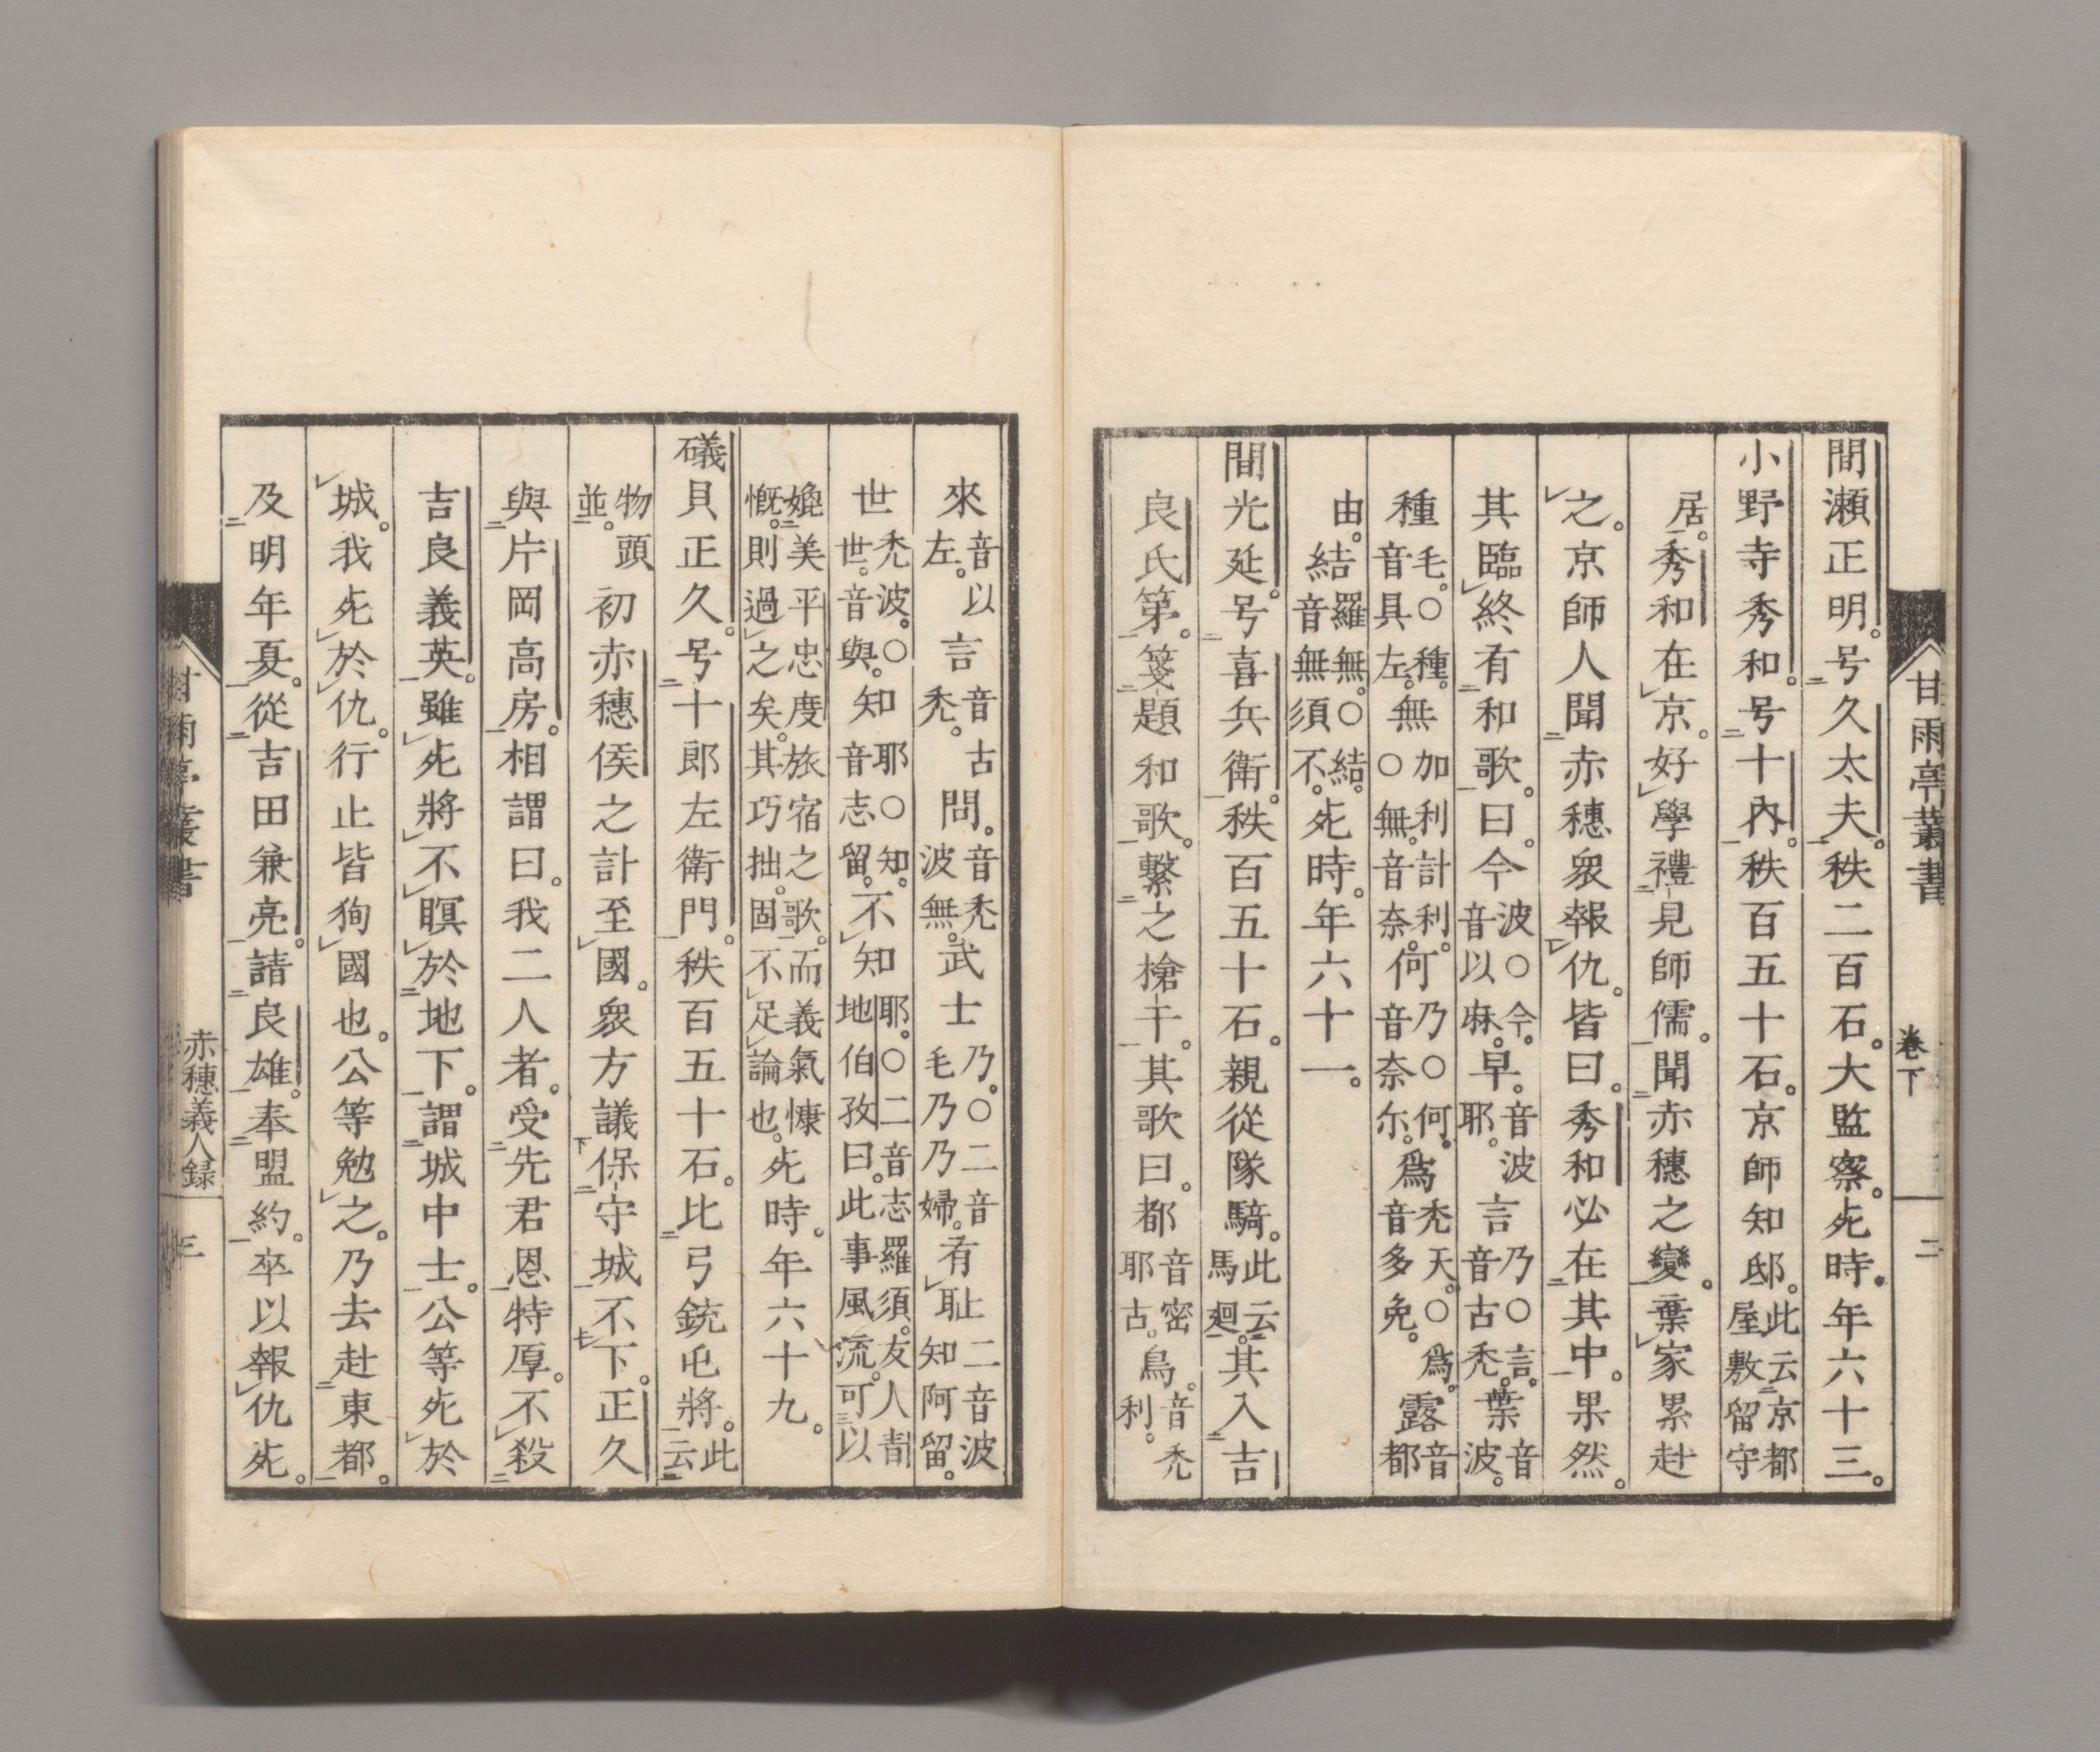 甘雨亭叢書 卷下 二
間瀬正明。号久太夫。秩二百石。大監察。死時。年六十三。
小野寺秀和。号十内。秩百五十石。京師知邸。此云京都屋敷留守
居。秀和在京。好學禮見師儒。聞赤穂之變。棄家累赴
之。京師人聞赤穂衆報仇。皆曰。秀和必在其中。果然。
其臨終有和歌曰。今波○今。音以麻。早。音波耶。言乃○言。音古禿。葉音波。
種毛。○種。音具左。無加利計利。○無。音奈。何乃○何。音奈尓。爲禿天。○爲。音多免。露音都
由。結羅無。○結。音無須不。死時。年六十一。
間光延。号喜兵衛。秩百五十石。親從隊騎。此云馬廻。其入吉
良氏第。箋題和歌。繋之槍干。其歌曰。都音密耶古。鳥。音禿利。
來音以左。言音古禿。問。音禿波無。武士乃。○二音毛乃乃婦。有耻二音波知阿留。
世禿波。○世。音與。知耶○知。音志留。不知耶。○二音志羅須。友人青地伯孜曰。此事風流。可以
媲美平忠度旅宿之歌。而義氣慷慨。則過之矣。其巧拙。固不足論也。死時。年六十九。
礒貝正久。号十郎左衛門。秩百五十石。比弓銃屯將。此云
物頭並。初赤穂侯之計至國。衆方議保守城不下。正久
與片岡高房。相謂曰。我二人者。受先君恩特厚。不殺
吉良義英。雖死將不瞑於地下。謂城中士。公等死於
城。我死於仇。行止皆狥國也。公等勉之。乃去赴東都。
及明年夏。從吉田兼亮。請良雄。奉盟約。卒以報仇死。
甘雨亭叢書 赤穂義人録 三